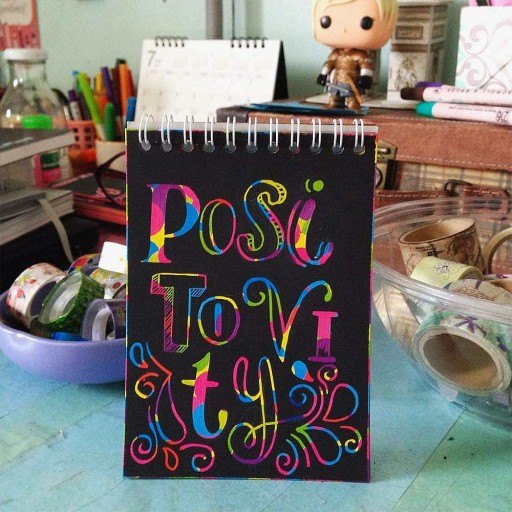 7
PoSi
ToVI
ty